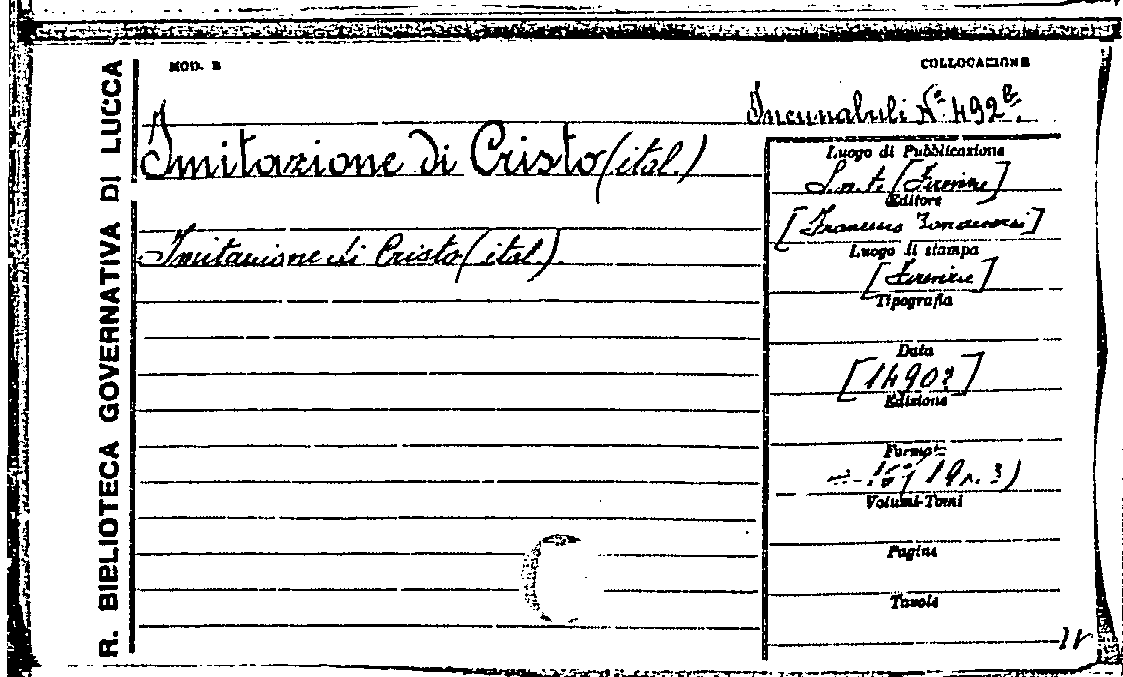 R. BIBLIOTECA GOVERNATIVA DI LUCCA
MOD. B
COLLOCAZIONE
Incunabuli N.º 492
Imitazione di Cristo (ital.)
Imitazione di Cristo (ital).
Luogo di Pubblicazione
S.n.t. [Firenze]
Editore
[Francesco
Luogo di stampa
[Firenze]
Tipografia
Data
[1490?]
Edizione
Formato
Volumi-Tomi
Pagine
Tavole